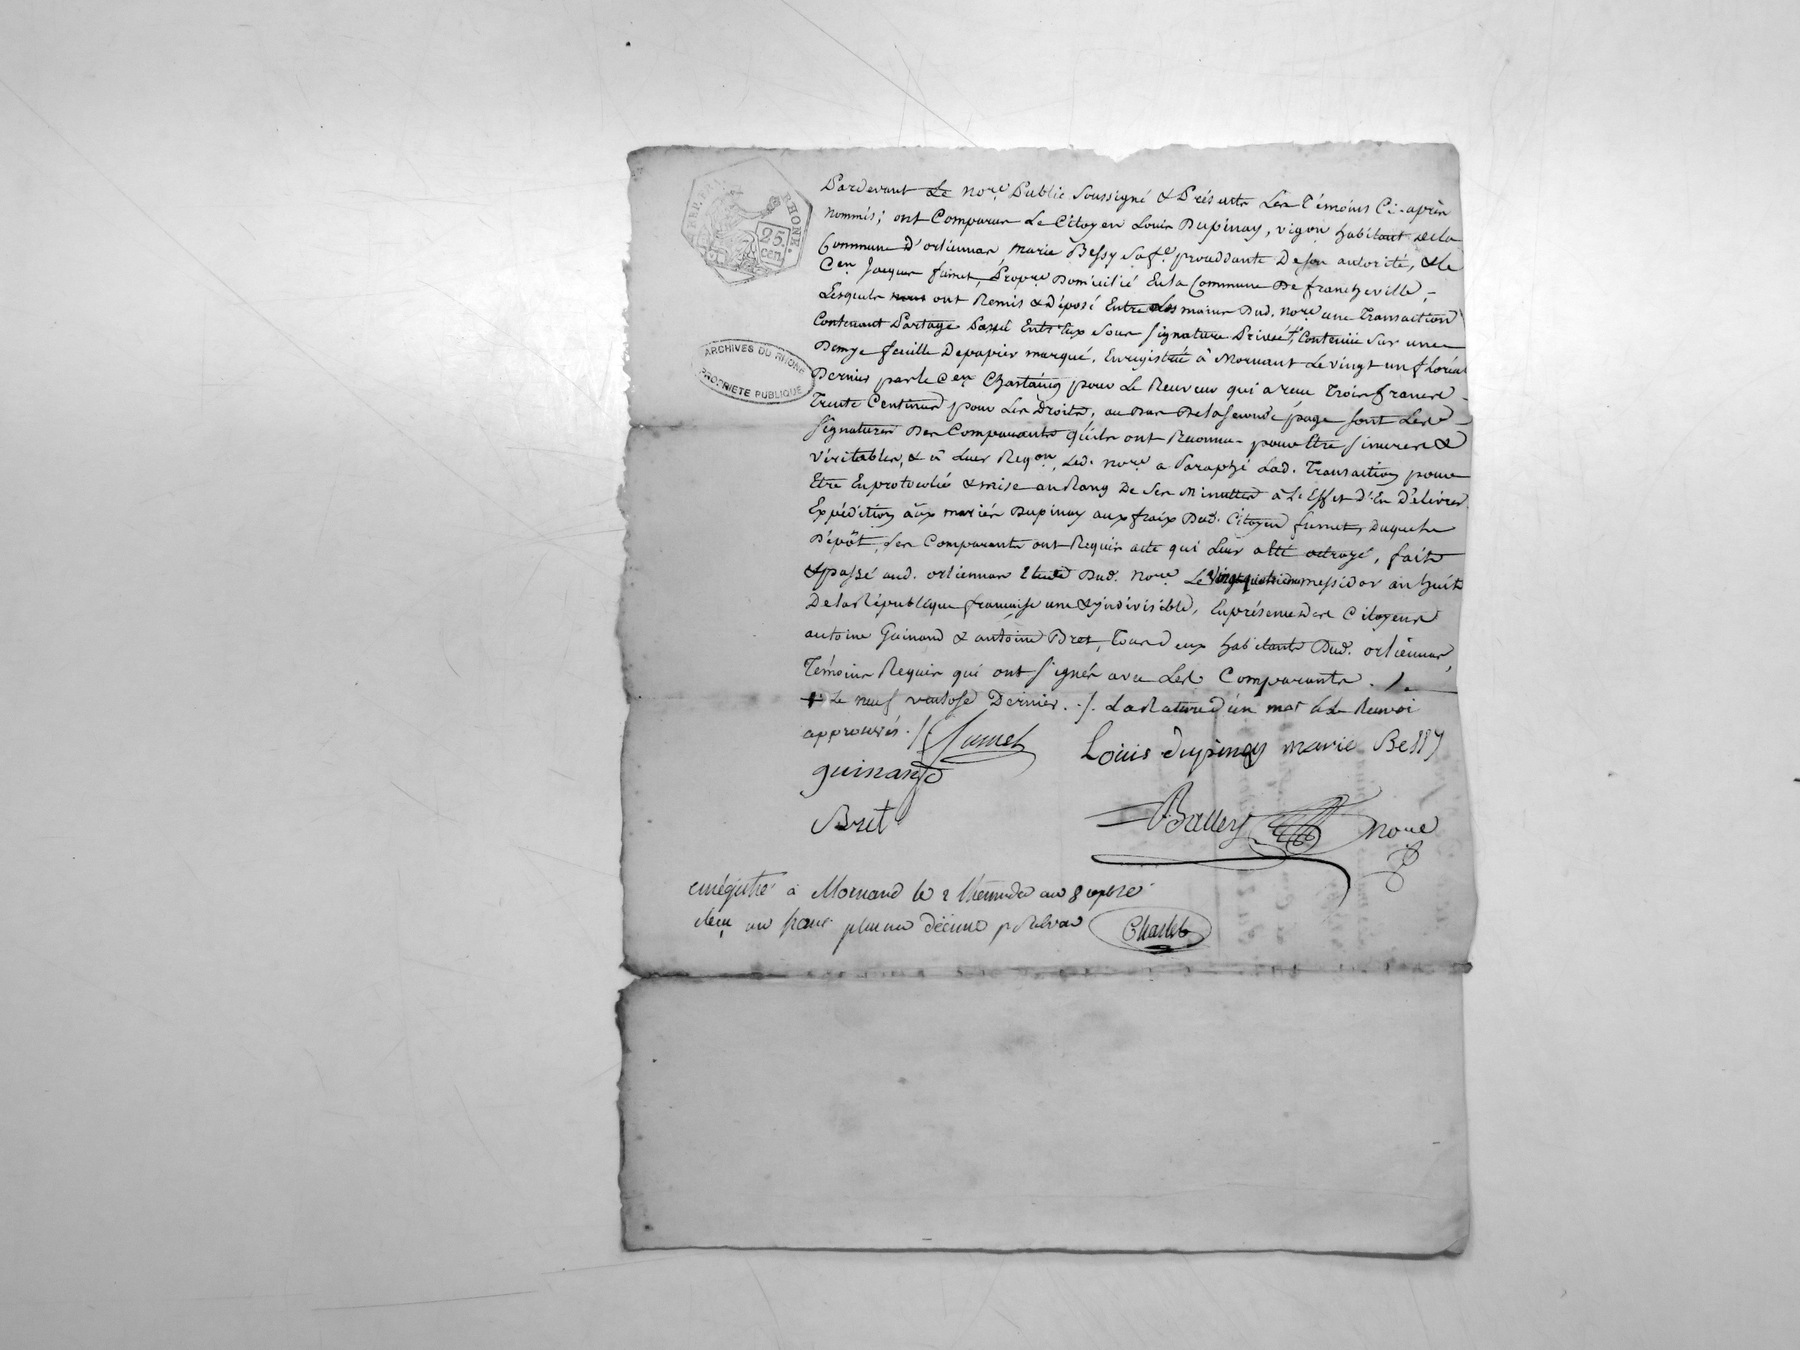 RHONE.
25.
cen.
Pardevant Le Nore. Public Soussigné & Présents Les Témoins Ci-après
Nommés; ont Comparus Le Citoyen Louis Dupinay, vigon habitant dela
Commune d'orliennas, marie Bessy Safe. procédante De son autorité, & le
Cen. Jacques fumet, Propre. Domicilié En la Commune De francheville,
Lesquels ont Remis & Déposé Entre Les mains Dud. Nore. une Transaction
Contenant Partage Passé Entr'Eux Sous Signature Privée, Contenue Sur une
Demye feuille De papier marqué, Enregistrée à Mornant Le vingt un floréal
Dernier par le Cen. Chastaing pour Le Receveur qui a reçu Trois francs
Trente Centimes pour Les Droits, au Bas De la Seconde page sont Les
Signatures Des Comparants qu'ils ont Reconnu pour Etre Sincères &
Véritables, & à Leur Reqon. Led. Nore. a Paraphé Lad. Transaction pour
Etre Enprotocolée & mise au Rang De Ses Minuttes à L'Effet d'En Délivrer
Expédition aux mariés Dupinay aux fraix Dud. Citoyen fumet, Duquel
Dépôt, Les Comparants ont Requis acte qui Leur a Eté octroyé, fait
& passé aud. orliennas Etude Dud. Nore. Le messidor an huit
De la République française une & indivisible, En présence Des Citoyens
antoine Guinand & antoine Bret, Tous deux habitants Dud. orliennas,
Témoins Requis qui ont Signés avec Les Comparants. /.
+ Le neuf ventose Dernier. ./. La Rature d'un mot & Le Renvoi
approuvés. /. fumet
Louis dupinay marie Bessy
guinand
Bret
Balley Nore
ARCHIVES DU RHONE
PROPRIETE PUBLIQUE
enregistré à Mornand le 2 thermidor an 8
Reçu un franc plus un décime